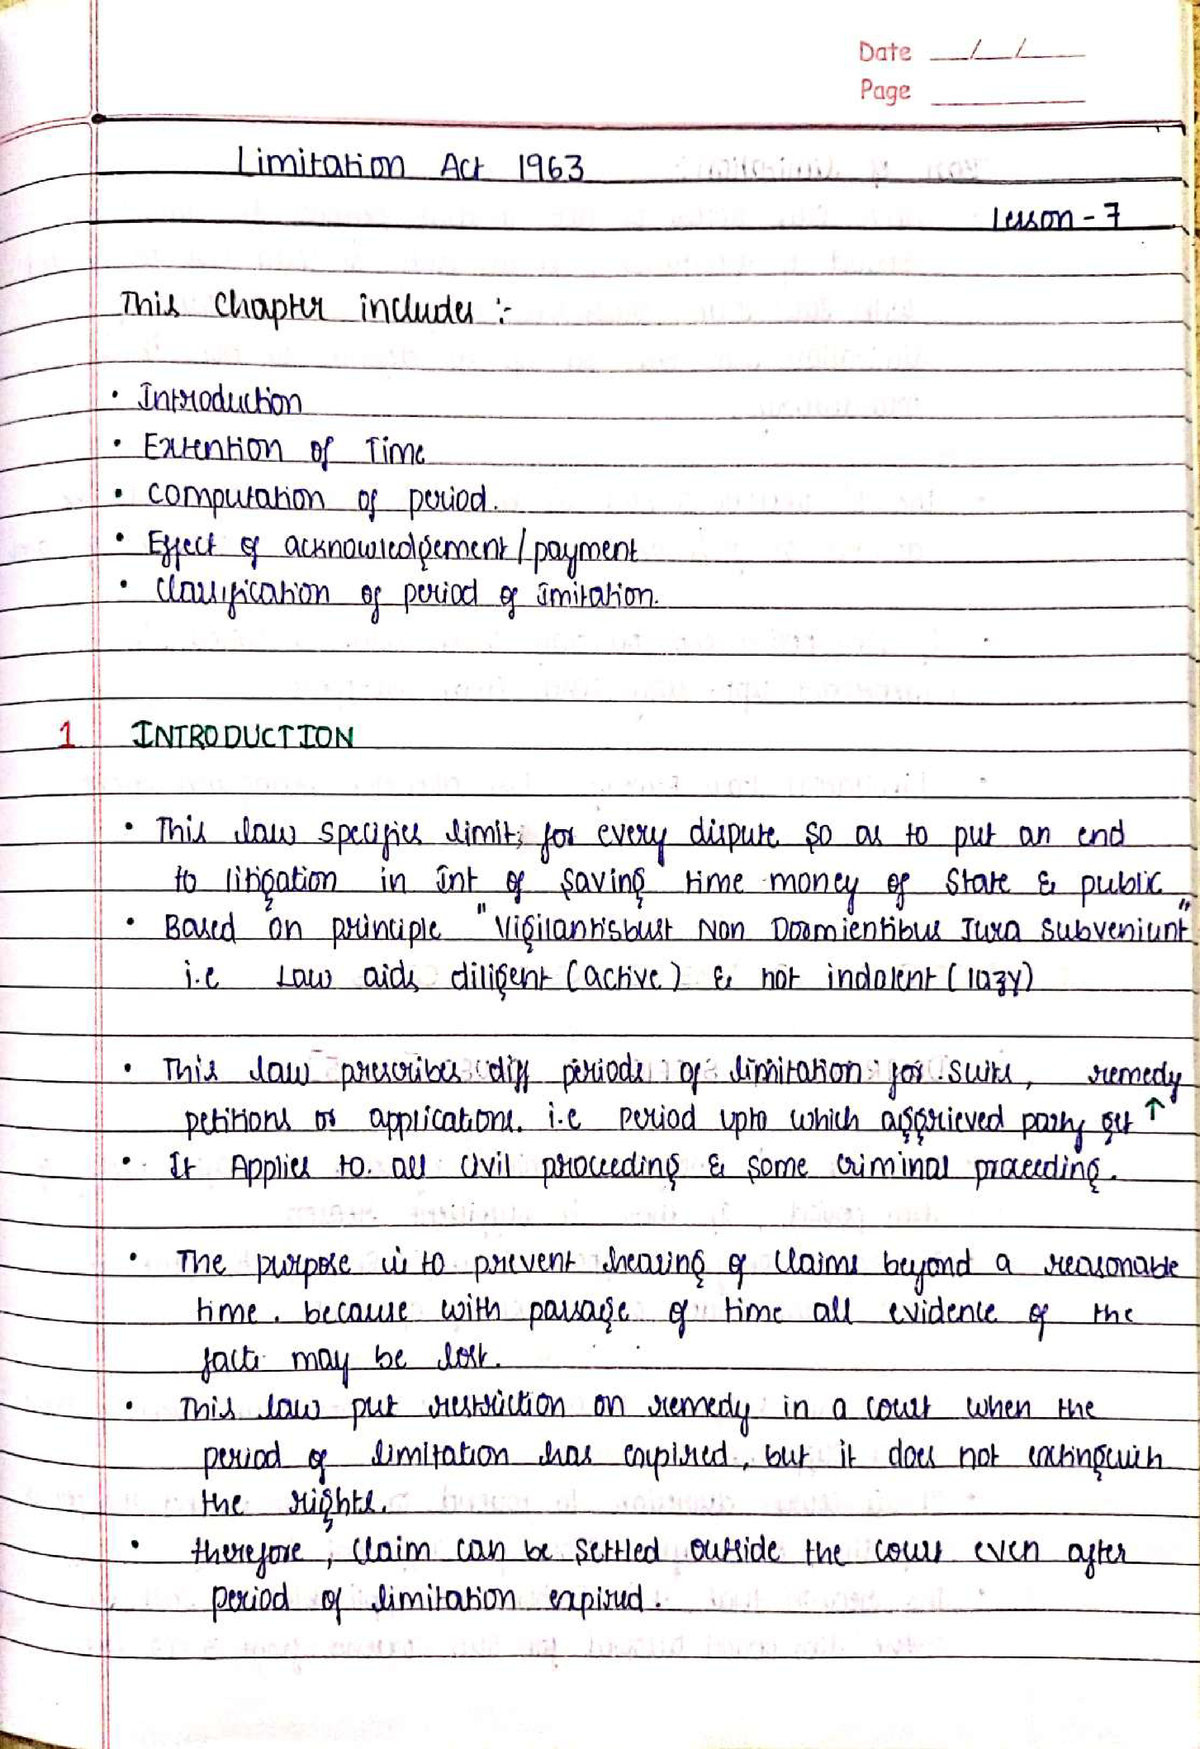 Date __/__/__
Page ______
Limitation Act 1963
Lesson - 7
This Chapter includes :-
• Introduction
• Extention of Time
• Computation of period.
• Effect of acknowledgement/payment
• Classification of period of limitation.
1 INTRODUCTION
• This law specifies limits for every dispute so as to put an end
to litigation in Int of saving time money of State & public
• Based on principle "Vigilantisbust Non Dormientibus Jura Subveniunt"
i.e Law aids diligent (active) & not indolent (lazy)
• This law prescribes diff periods of limitation for suits,
petitions or applications. i.e period upto which aggrieved party get ↑ remedy
• It Applies to all civil proceeding & some criminal proceeding.
• The purpose is to prevent hearing of claims beyond a reasonable
time. because with passage of time all evidence of the
facts may be lost.
• This law put restriction on remedy in a court when the
period of limitation has expired, but it does not extinguish
the rights.
• therefore, claim can be settled outside the court even after
period of limitation expired.